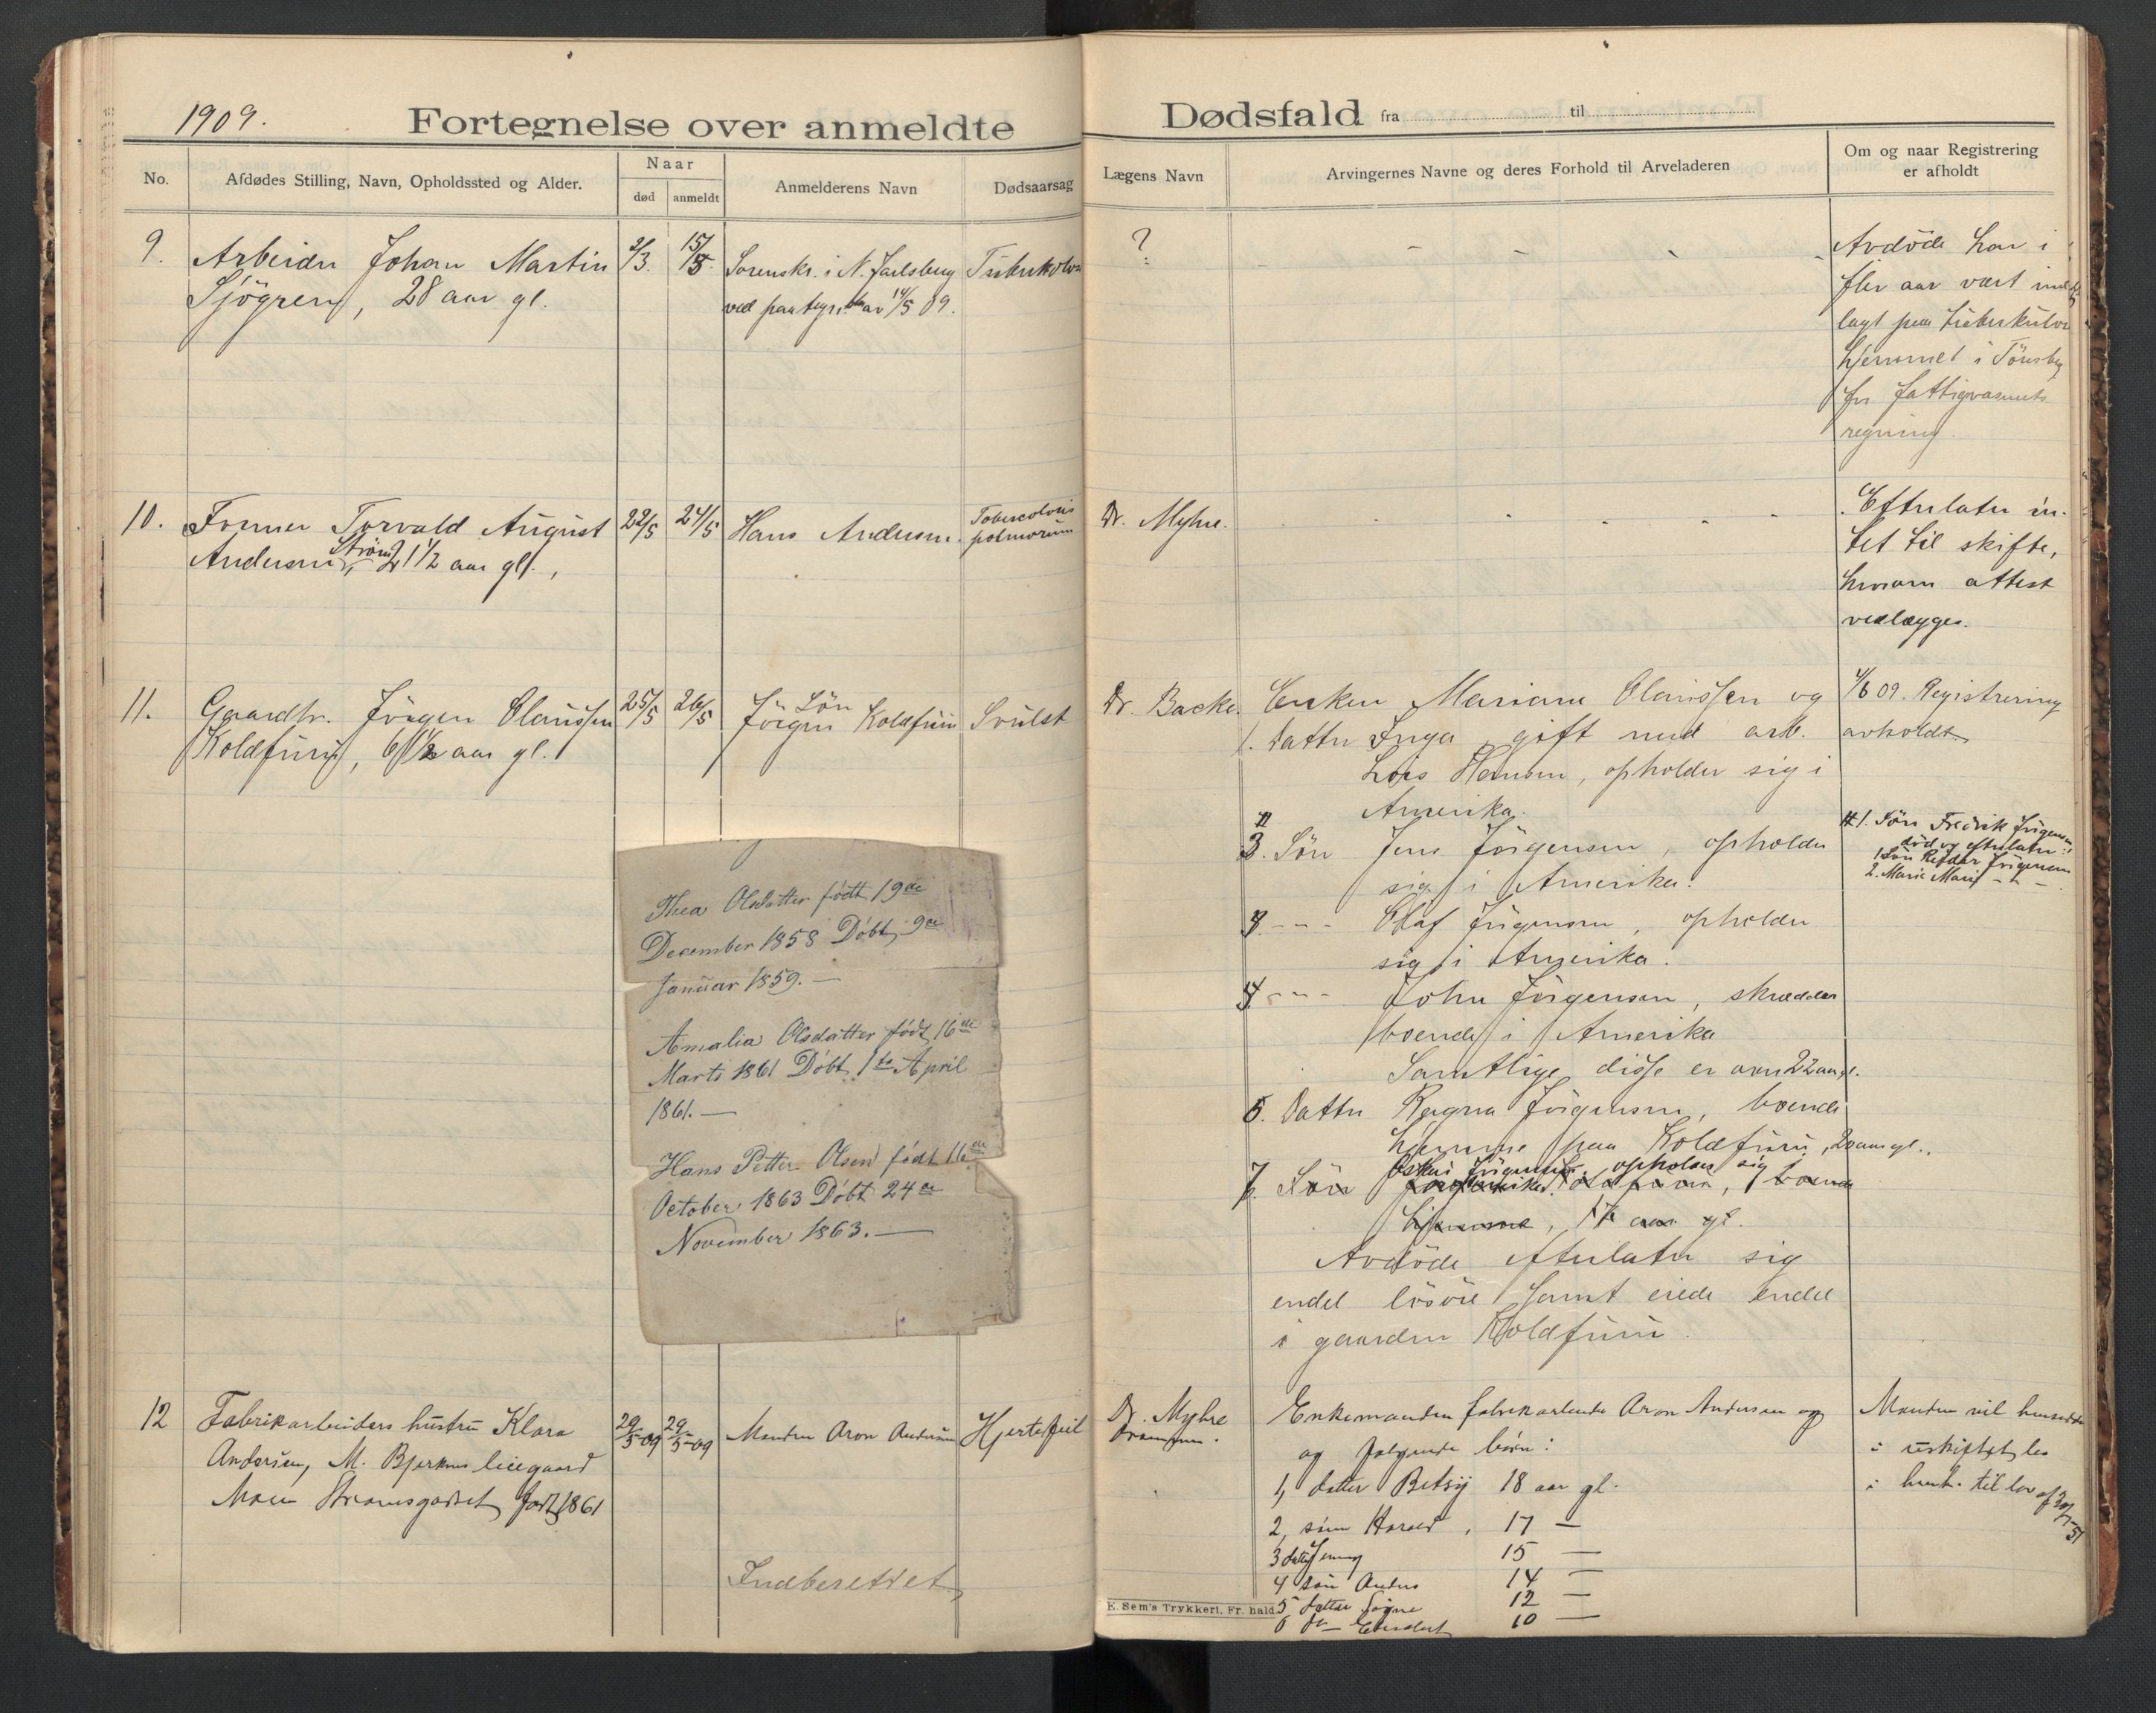 1909.
Fortegnelse over anmeldte
Dødsfald fra til
No.
Afdødes Stilling, Navn, Opholdssted og Alder.
Naar
død
anmeldt
Anmelderens Navn
Dødsaarsag
Lægens Navn
Arvingernes Navne og deres Forhold til Arveladeren
Om og naar Registrering
er afholdt
9.
Arbeider Johan Martin
Sjögren, 28 aar gl.
2/3.
15/5.
Sorenskr. i N. Jarlsberg
ved paategn. av 14/5 09.
Tuberkolos
?
Avdöde har i
fler aar vært ind
lagt paa tuberkulos
hjemmet i Tönsberg
for fattigvæsenets
regning.
10.
Former Torvald August
Andersen Ström, 21 1/2 aar gl.,
22/5
24/5
Hans Andersen.
Tobercolosis
polmorum
Dr. Myhre.
Efterlater in-
tet til skifte,
hvorom attest
vedlægges.
11.
Gaardbr. Jörgen Claussen
Koldfuru, 61 1/2 aar gl.
25/5
26/5
Sön
Jörgen Koldfuru
Svulst
Dr. Backe.
Enken Mariane Claussen og
1. Datter Inga, gift med arb.
Lars Hansen, opholder sig i
Amerika.
3. Sön Jens Jörgensen, opholder
sig i Amerika.
- - - Olaf Jörgensen, opholder
sig i Amerika.
- - - John Jörgensen, skrædder
boende i Amerika
Samtlige disse er over 22 aar gl.
6. Datter Ragna Jörgensen, boende
hjemme paa Koldfuru, 20 aar gl.,
7. Sön Oskar Jörgensen, opholder sig i
Amerika, boende
hjemme, 17 aar gl.
Avdöde efterlater sig
endel lösöre samt eiede endel
i gaarden Koldfuru.
4/6 09. Registrering
avholdt
# 1. Sön Fredrik Jörgensen
död og efterlater:
1 Sön Reidar Jörgensen
2. Marie Marie - " -
Thea Olsdatter födt 19de
December 1858 Döbt 9de
Januar 1859. —
Amalia Olsdatter födt 16de
Marts 1861 Döbt 1te April
1861. —
Hans Petter Olsen födt 16de
October 1863 Döbt 24de
November 1863. —
12
Fabrikarbeiders hustru Klara
Andersen, M. Bjerknes leiegaard
Moen Strømsgodset født 1861
29/5-09
29/5-09
Manden Aron Andersen
Hjertefeil
Indberettet
Dr. Myhre
Drammen.
Enkemanden fabrikarbeider Aron Andersen og
og følgende børn:
1, datter Betsy 18 aar gl.
2, søn Harald, 17 —
3 datter Jenny 15 —
4 søn Anders 14 —
5 datter Signe 12 —
6 do — 10 —
Manden vil hensidde
i uskiftet bo
i henh. til lov af 30/7-51
E. Sem's Trykkeri, Fr. hald.